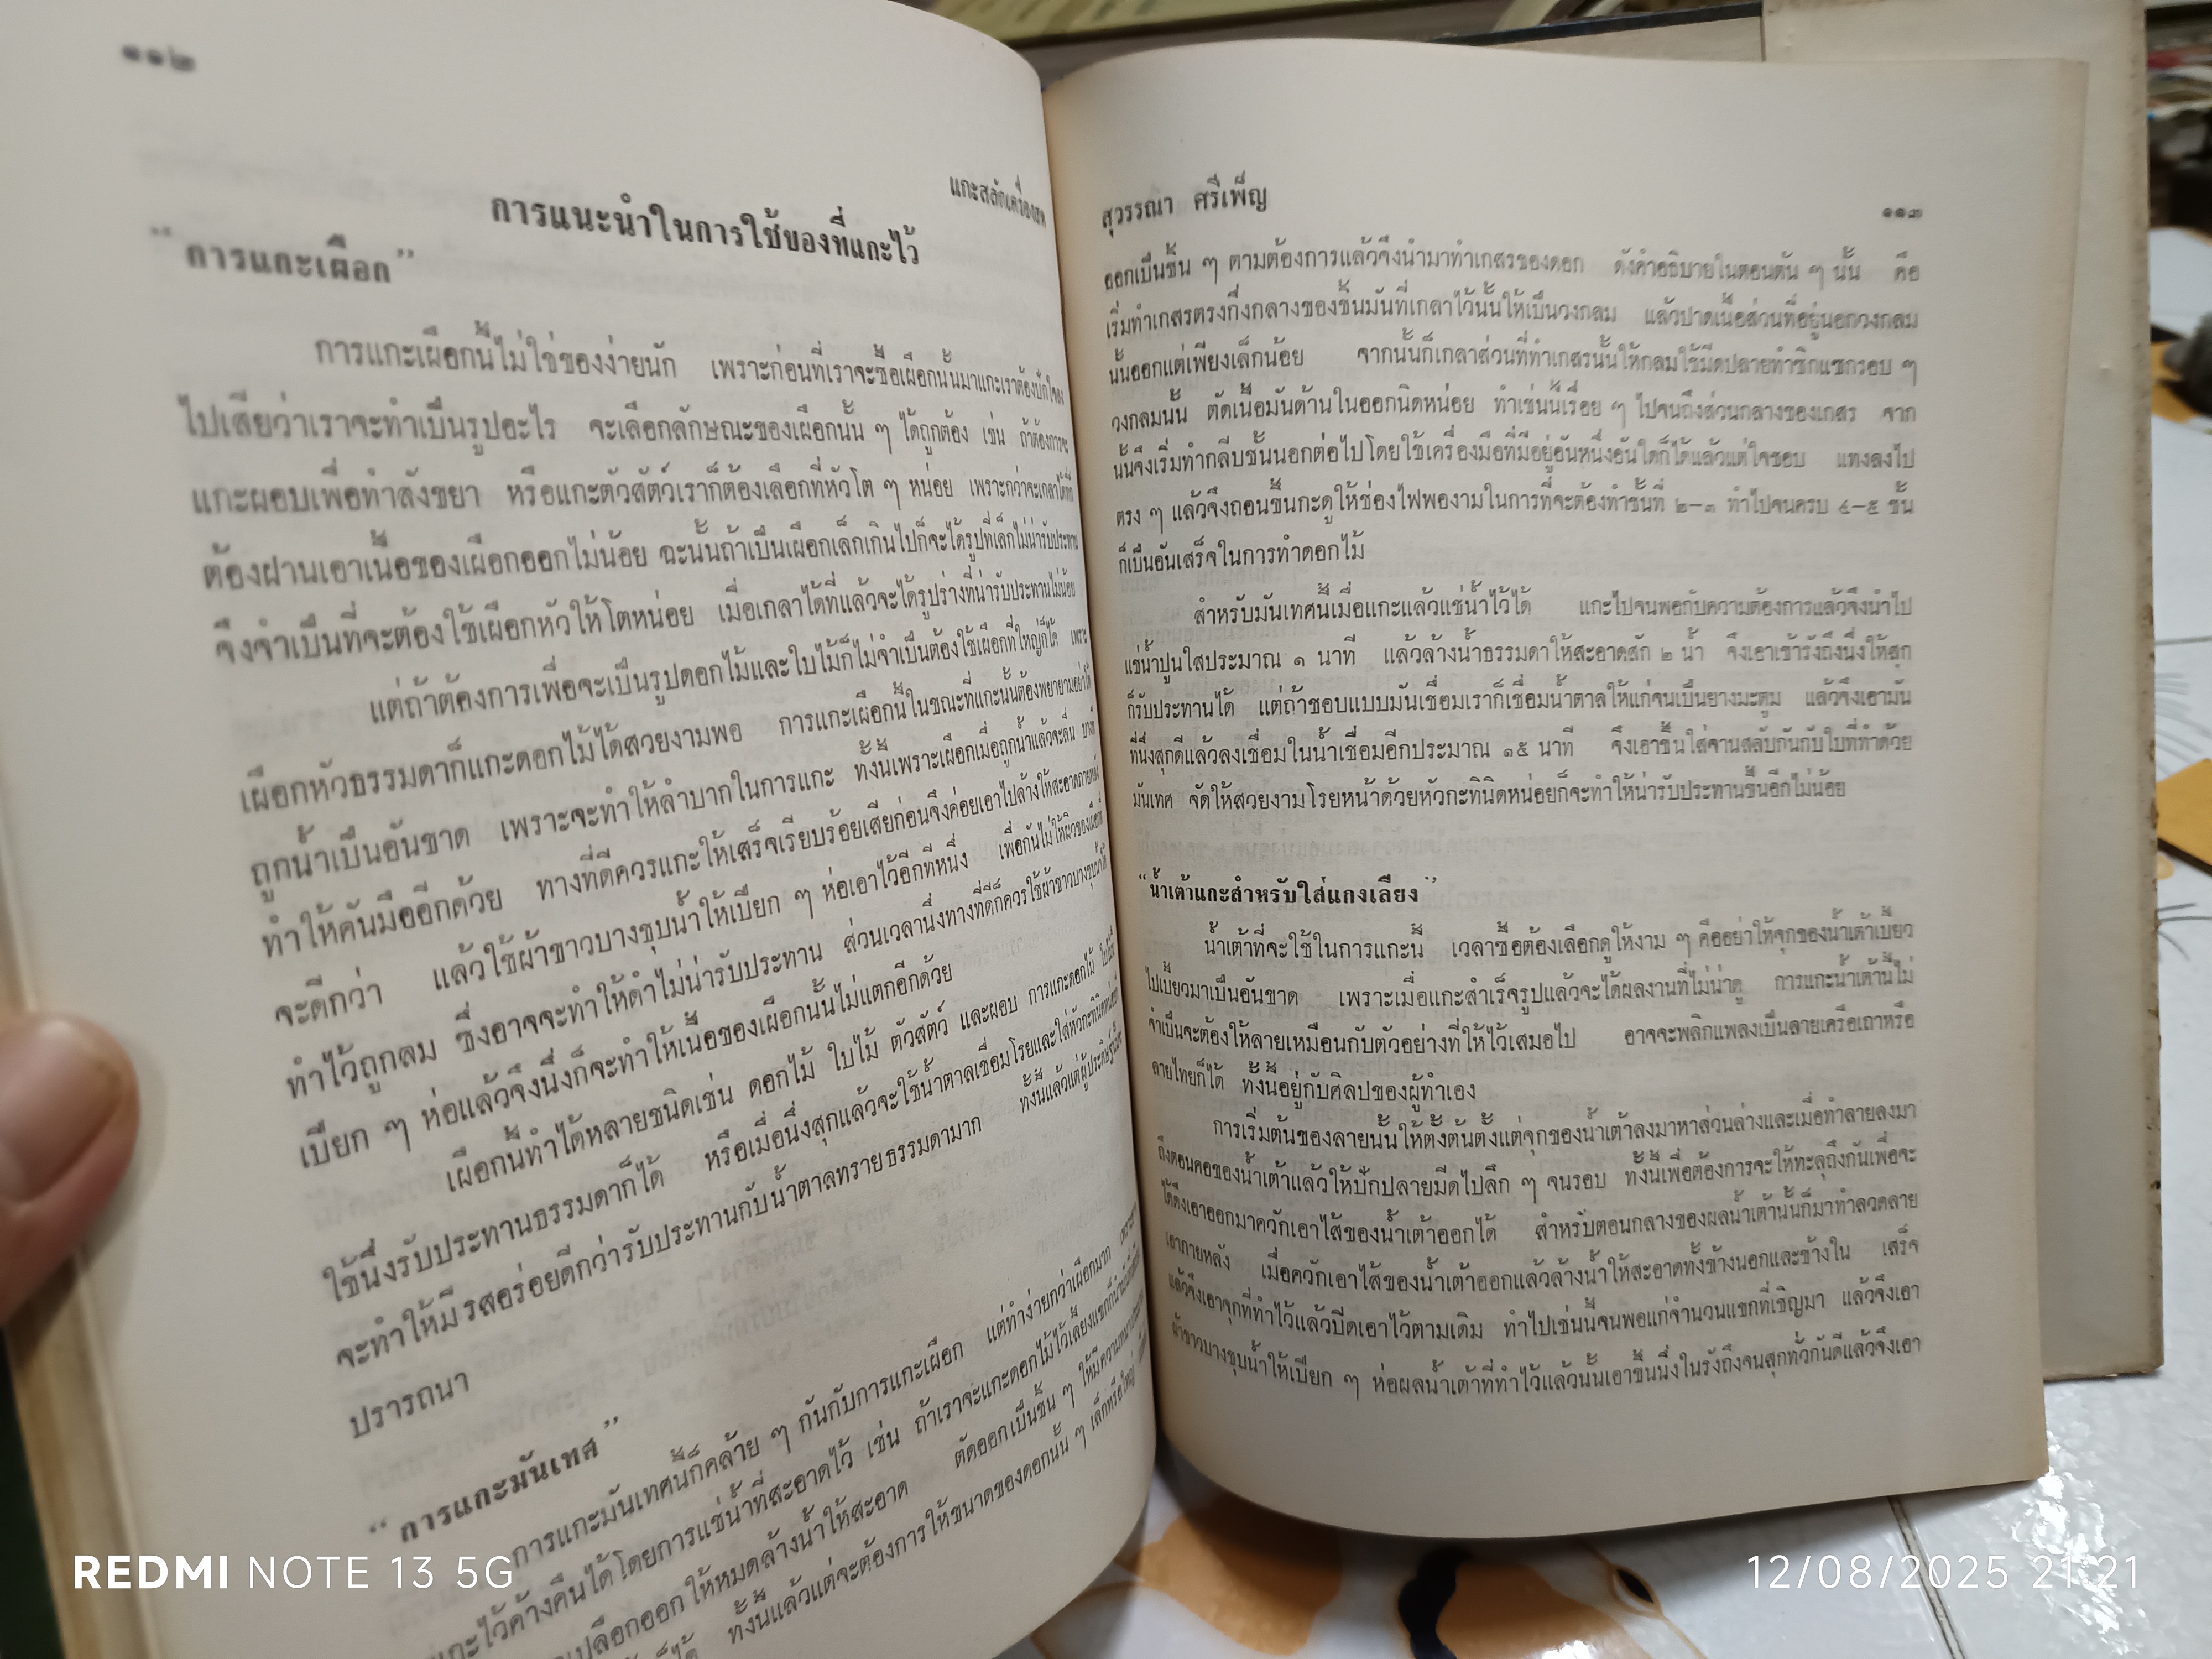 ๑๑๒
แกะสลักเครื่องสด
การแนะนำในการใช้ของที่แกะไว้
“การแกะเผือก”
การแกะเผือกนี้ไม่ใช่ของง่ายนัก เพราะก่อนที่เราจะซื้อเผือกนั้นมาแกะเราต้องนึกใจลง
ไปเสียว่าเราจะทำเป็นรูปอะไร จะเลือกลักษณะของเผือกนั้น ๆ ได้ถูกต้อง เช่น ถ้าต้องการจะ
แกะผอบเพื่อทำสังขยา หรือแกะตัวสัตว์เราก็ต้องเลือกที่หัวโต ๆ หน่อย เพราะกว่าจะเกลาได้ที่ก็
ต้องฝานเอาเนื้อของเผือกออกไม่น้อย ฉะนั้นถ้าเป็นเผือกเล็กเกินไปก็จะได้รูปที่เล็กไม่น่ารับประทาน
จึงจำเป็นที่จะต้องใช้เผือกหัวให้โตหน่อย เมื่อเกลาได้ที่แล้วจะได้รูปร่างที่น่ารับประทานไม่น้อย
แต่ถ้าต้องการเพื่อจะเป็นรูปดอกไม้และใบไม้ก็ไม่จำเป็นต้องใช้เผือกที่ใหญ่ก็ได้ เพราะ
เผือกหัวธรรมดาก็แกะดอกไม้ได้สวยงามพอ การแกะเผือกนี้ในขณะที่แกะนั้นต้องพยายามอย่าให้
ถูกน้ำเป็นอันขาด เพราะจะทำให้ลำบากในการแกะ ทั้งนี้เพราะเผือกเมื่อถูกน้ำแล้วจะลื่น
ทำให้คันมืออีกด้วย ทางที่ดีควรแกะให้เสร็จเรียบร้อยเสียก่อนจึงค่อยเอาไปล้างให้สะอาดภายหลัง
จะดีกว่า แล้วใช้ผ้าขาวบางชุบน้ำให้เปียก ๆ ห่อเอาไว้อีกทีหนึ่ง เพื่อกันไม่ให้ผิวของเผือกที่
ทำไว้ถูกลม ซึ่งอาจจะทำให้ดำไม่น่ารับประทาน ส่วนเวลานึ่งทางที่ดีก็ควรใช้ผ้าขาวบางชุบน้ำให้
เปียก ๆ ห่อแล้วจึงนึ่งก็จะทำให้เนื้อของเผือกนั้นไม่แตกอีกด้วย
เผือกนี้ทำได้หลายชนิดเช่น ดอกไม้ ใบไม้ ตัวสัตว์ และผอบ การแกะดอกไม้ ใบไม้นี้
ใช้นึ่งรับประทานธรรมดาก็ได้ หรือเมื่อนึ่งสุกแล้วจะใช้น้ำตาลเชื่อมโรยและใส่หัวกะทินิดหน่อยก็
จะทำให้มีรสอร่อยดีกว่ารับประทานกับน้ำตาลทรายธรรมดามาก ทั้งนี้แล้วแต่ผู้ประดิษฐ์นั้นจะ
ปรารถนา
“การแกะมันเทศ”
การแกะมันเทศนี้ก็คล้าย ๆ กันกับการแกะเผือก แต่ทำง่ายกว่าเผือกมาก เพราะเรา
แกะไว้ค้างคืนได้โดยการแช่น้ำที่สะอาดไว้ เช่น ถ้าเราจะแกะดอกไม้ไว้เลี้ยงแขก
เปลือกออกให้หมดล้างน้ำให้สะอาด ตัดออกเป็นชิ้น ๆ ให้มีความหนา
ก็ได้ ทั้งนี้แล้วแต่จะต้องการให้ขนาดของดอกนั้น ๆ เล็กหรือใหญ่
สุวรรณา ศรีเพ็ญ
๑๑๓
ออกเป็นชิ้น ๆ ตามต้องการแล้วจึงนำมาทำเกสรของดอก ดังคำอธิบายในตอนต้น ๆ นั้น คือ
เริ่มทำเกสรตรงกึ่งกลางของชิ้นมันที่เกลาไว้นั้นให้เป็นวงกลม แล้วปาดเนื้อส่วนที่อยู่นอกวงกลม
นั้นออกแต่เพียงเล็กน้อย จากนั้นก็เกลาส่วนที่ทำเกสรนั้นให้กลมใช้มีดปลายทำซิกแซกรอบ ๆ
วงกลมนั้น ตัดเนื้อมันด้านในออกนิดหน่อย ทำเช่นนี้เรื่อย ๆ ไปจนถึงส่วนกลางของเกสร จาก
นั้นจึงเริ่มทำกลีบชั้นนอกต่อไปโดยใช้เครื่องมือที่มีอยู่อันหนึ่งอันใดก็ได้แล้วแต่ใจชอบ แทงลงไป
ตรง ๆ แล้วจึงถอนขึ้นกะดูให้ช่องไฟพองามในการที่จะต้องทำชั้นที่ ๒-๓ ทำไปจนครบ ๔-๕ ชั้น
ก็เป็นอันเสร็จในการทำดอกไม้
สำหรับมันเทศนี้เมื่อแกะแล้วแช่น้ำไว้ได้ แกะไปจนพอกับความต้องการแล้วจึงนำไป
แช่น้ำปูนใสประมาณ ๑ นาที แล้วล้างน้ำธรรมดาให้สะอาดสัก ๒ น้ำ จึงเอาเข้ารังถึงนึ่งให้สุก
ก็รับประทานได้ แต่ถ้าชอบแบบมันเชื่อมเราก็เชื่อมน้ำตาลให้แก่จนเป็นยางมะตูม แล้วจึงเอามัน
ที่นึ่งสุกดีแล้วลงเชื่อมในน้ำเชื่อมอีกประมาณ ๑๕ นาที จึงเอาขึ้นใส่จานสลับกันกับใบที่ทำด้วย
มันเทศ จัดให้สวยงามโรยหน้าด้วยหัวกะทินิดหน่อยก็จะทำให้น่ารับประทานขึ้นอีกไม่น้อย
“น้ำเต้าแกะสำหรับใส่แกงเลียง”
น้ำเต้าที่จะใช้ในการแกะนี้ เวลาซื้อต้องเลือกดูให้งาม ๆ คืออย่าให้จุกของน้ำเต้าเบี้ยว
ไปเบี้ยวมาเป็นอันขาด เพราะเมื่อแกะสำเร็จรูปแล้วจะได้ผลงานที่ไม่น่าดู การแกะน้ำเต้านี้ไม่
จำเป็นจะต้องให้ลายเหมือนกับตัวอย่างที่ให้ไว้เสมอไป อาจจะพลิกแพลงเป็นลายเครือเถาหรือ
ลายไทยก็ได้ ทั้งนี้อยู่กับศิลปของผู้ทำเอง
การเริ่มต้นของลายนั้นให้ตั้งต้นตั้งแต่จุกของน้ำเต้าลงมาหาส่วนล่างและเมื่อทำลายลงมา
ถึงตอนคอของน้ำเต้าแล้วให้ปักปลายมีดไปลึก ๆ จนรอบ ทั้งนี้เพื่อต้องการจะให้ทะลุถึงกันเพื่อจะ
ได้ดึงเอาออกมาควักเอาไส้ของน้ำเต้าออกได้ สำหรับตอนกลางของผลน้ำเต้านั้นก็มาทำลวดลาย
เอาภายหลัง เมื่อควักเอาไส้ของน้ำเต้าออกแล้วล้างน้ำให้สะอาดทั้งข้างนอกและข้างใน เสร็จ
แล้วจึงเอาจุกที่ทำไว้แล้วปิดเอาไว้ตามเดิม ทำไปเช่นนี้จนพอแก่จำนวนแขกที่เชิญมา แล้วจึงเอา
ผ้าขาวบางชุบน้ำให้เปียก ๆ ห่อผลน้ำเต้าที่ทำไว้แล้วนั้นเอาขึ้นนึ่งในรังถึงจนสุกทั่วกันดีแล้วจึงเอา
REDMI NOTE 13 5G
12/08/2025 21:21